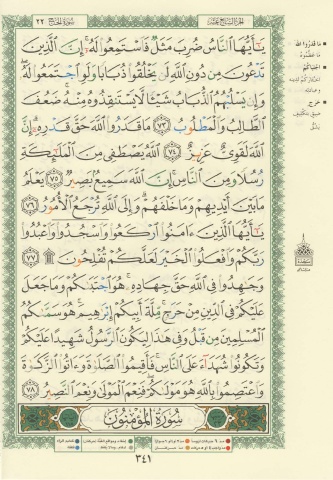 الجزء السابع عشر
٢٢ سورة الحج
يَٰٓأَيُّهَا ٱلنَّاسُ ضُرِبَ مَثَلٌ فَٱسْتَمِعُوا۟ لَهُۥٓ ۚ إِنَّ ٱلَّذِينَ
تَدْعُونَ مِن دُونِ ٱللَّهِ لَن يَخْلُقُوا۟ ذُبَابًا وَلَوِ ٱجْتَمَعُوا۟ لَهُۥ ۖ
وَإِن يَسْلُبْهُمُ ٱلذُّبَابُ شَيْـًٔا لَّا يَسْتَنقِذُوهُ مِنْهُ ۚ ضَعُفَ
ٱلطَّالِبُ وَٱلْمَطْلُوبُ ٧٣ مَا قَدَرُوا۟ ٱللَّهَ حَقَّ قَدْرِهِۦٓ ۗ إِنَّ
ٱللَّهَ لَقَوِىٌّ عَزِيزٌ ٧٤ ٱللَّهُ يَصْطَفِى مِنَ ٱلْمَلَٰٓئِكَةِ
رُسُلًا وَمِنَ ٱلنَّاسِ ۚ إِنَّ ٱللَّهَ سَمِيعٌۢ بَصِيرٌ ٧٥ يَعْلَمُ
مَا بَيْنَ أَيْدِيهِمْ وَمَا خَلْفَهُمْ ۗ وَإِلَى ٱللَّهِ تُرْجَعُ ٱلْأُمُورُ ٧٦
يَٰٓأَيُّهَا ٱلَّذِينَ ءَامَنُوا۟ ٱرْكَعُوا۟ وَٱسْجُدُوا۟ وَٱعْبُدُوا۟
رَبَّكُمْ وَٱفْعَلُوا۟ ٱلْخَيْرَ لَعَلَّكُمْ تُفْلِحُونَ ۩ ٧٧
وَجَٰهِدُوا۟ فِى ٱللَّهِ حَقَّ جِهَادِهِۦ ۚ هُوَ ٱجْتَبَىٰكُمْ وَمَا جَعَلَ
عَلَيْكُمْ فِى ٱلدِّينِ مِنْ حَرَجٍ ۚ مِّلَّةَ أَبِيكُمْ إِبْرَٰهِيمَ ۚ هُوَ سَمَّىٰكُمُ
ٱلْمُسْلِمِينَ مِن قَبْلُ وَفِى هَٰذَا لِيَكُونَ ٱلرَّسُولُ شَهِيدًا عَلَيْكُمْ
وَتَكُونُوا۟ شُهَدَآءَ عَلَى ٱلنَّاسِ ۚ فَأَقِيمُوا۟ ٱلصَّلَوٰةَ وَءَاتُوا۟ ٱلزَّكَوٰةَ
وَٱعْتَصِمُوا۟ بِٱللَّهِ هُوَ مَوْلَىٰكُمْ ۖ فَنِعْمَ ٱلْمَوْلَىٰ وَنِعْمَ ٱلنَّصِيرُ ٧٨
سورة المؤمنون
٣٤١
ما قدروا الله
ما عظموه
اجتباكم
حرج